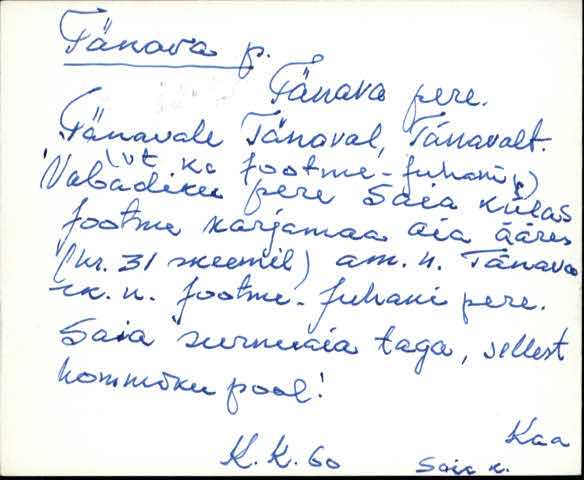 Tänava p.
Tänava pere.
Tänavale Tänaval, Tänavalt.
(vt ka Jootme-Juhani p)
Vabadiku pere Saia külas
Jootme karjamaa aia ääres
(nr. 31 skeemil) am. n. Tänava
rk. n. Jootme-Juhani pere.
Saia surnuaia taga, sellest
hommõku pool!
Kaa
K. K. 60
Saia k.